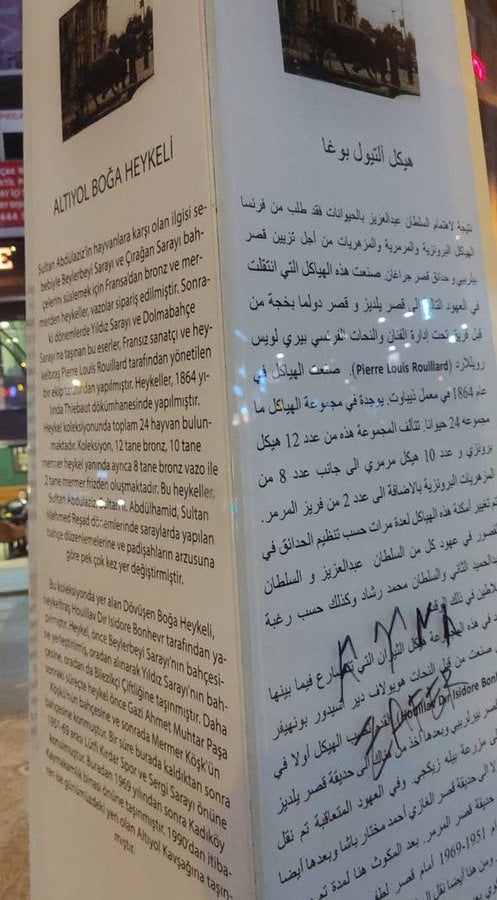 ALTIYOL BOĞA HEYKELİ
Sultan Abdülaziz'in hayvanlara karşı olan ilgisi se-
bebiyle Beylerbeyi Sarayı ve Çırağan Sarayı bah-
çelerini süslemek için Fransa'dan bronz ve mer-
merden heykeller, vazolar sipariş edilmiştir. Sonra-
ki dönemlerde Yıldız Sarayı ve Dolmabahçe
Sarayı'na taşınan bu eserler, Fransız sanatçı ve hey-
keltıraş Pierre Louis Rouillard tarafından yönetilen
bir ekip tarafından yapılmıştır. Heykeller, 1864 yı-
lında Thiebaut dökümhanesinde yapılmıştır.
Heykel koleksiyonunda toplam 24 hayvan bulun-
maktadır. Koleksiyon, 12 tane bronz, 10 tane
mermer heykel yanında ayrıca 8 tane bronz vazo ile
2 tane mermer frizden oluşmaktadır. Bu heykeller,
Sultan Abdülaziz, II. Abdülhamid, Sultan
Mehmed Reşad dönemlerinde saraylarda yapılan
bahçe düzenlemelerine ve padişahların arzusuna
göre pek çok kez yer değiştirmiştir.
Bu koleksiyonda yer alan Dövüşen Boğa Heykeli,
heykeltraş Houillav Dır Isidore Bonhevr tarafından ya-
pılmıştır. Heykel, önce Beylerbeyi Sarayı'nın bahçesi-
ne yerleştirilmiş, oradan alınarak Yıldız Sarayı'nın bah-
çesine, oradan da Bilezikçi Çiftliğine taşınmıştır. Daha
sonraki süreçte heykel önce Gazi Ahmet Muhtar Paşa
Köşkü'nün bahçesine ve sonrada Mermer Köşk'ün
bahçesine konmuştur. Bir süre burada kaldıktan sonra
1951-69 arası Lütfi Kırdar Spor ve Sergi Sarayı önüne
konulmuştur. Buradan 1969 yılından sonra Kadıköy
Kaymakamlık binası önüne taşınmıştır. 1990'dan itiba-
ren ise günümüzdeki yeri olan Altıyol Kavşağına taşın-
mıştır.
هيكل آلتيول بوغا
نتيجة لاهتمام السلطان عبدالعزيز بالحيوانات فقد طلب من فرنسا
الهياكل البرونزية والمرمرية والمزهريات من أجل تزيين قصر
بيلربي وحدائق قصر جراغان. صنعت هذه الهياكل التي انتقلت
في العهود التالية الى قصر يلديز و قصر دولما بخجة من
قبل فريق تحت إدارة الفنان والنحات الفرنسي بيري لويس
رويلارد (Pierre Louis Rouillard). صنعت الهياكل في
عام 1864 في معمل ذيباوت. يوجدة في مجموعة الهياكل ما
مجموعه 24 حيوانا. تتألف المجموعة هذه من عدد 12 هيكل
برونزي و عدد 10 هيكل مرمري الى جانب عدد 8 من
المزهريات البرونزية بالاضافة الى عدد 2 من فريز المرمر.
تم تغيير امكنة هذه الهياكل لعدة مرات حسب تنظيم الحدائق في
القصور في عهود كل من السلطان عبدالعزيز و السلطان
عبدالحميد الثاني والسلطان محمد رشاد وكذلك حسب رغبة
السلاطين في ذلك
في هذه المجموعة هيكل الثيران التي تتصارع فيما بينها
صنعت من قبل النحات هويولاف دير أسيدور بونهيفر
(Houillav Dır Isidore Bonh
الهيكل أولا في
قصر بيلربي وبعدها أخذ من هناك الى حديقة قصر يلديز
الى مزرعة بيله زيكجي. وفي العهود المتعاقبة تم نقل
الى حديقة قصر الغازي أحمد مختار باشا وبعدها أيضا
حديقة قصر المرمر. بعد المكوث هنا لمدة تم
1951-1969 أمام قصر لطفي
ومن هنا أيضا نقل